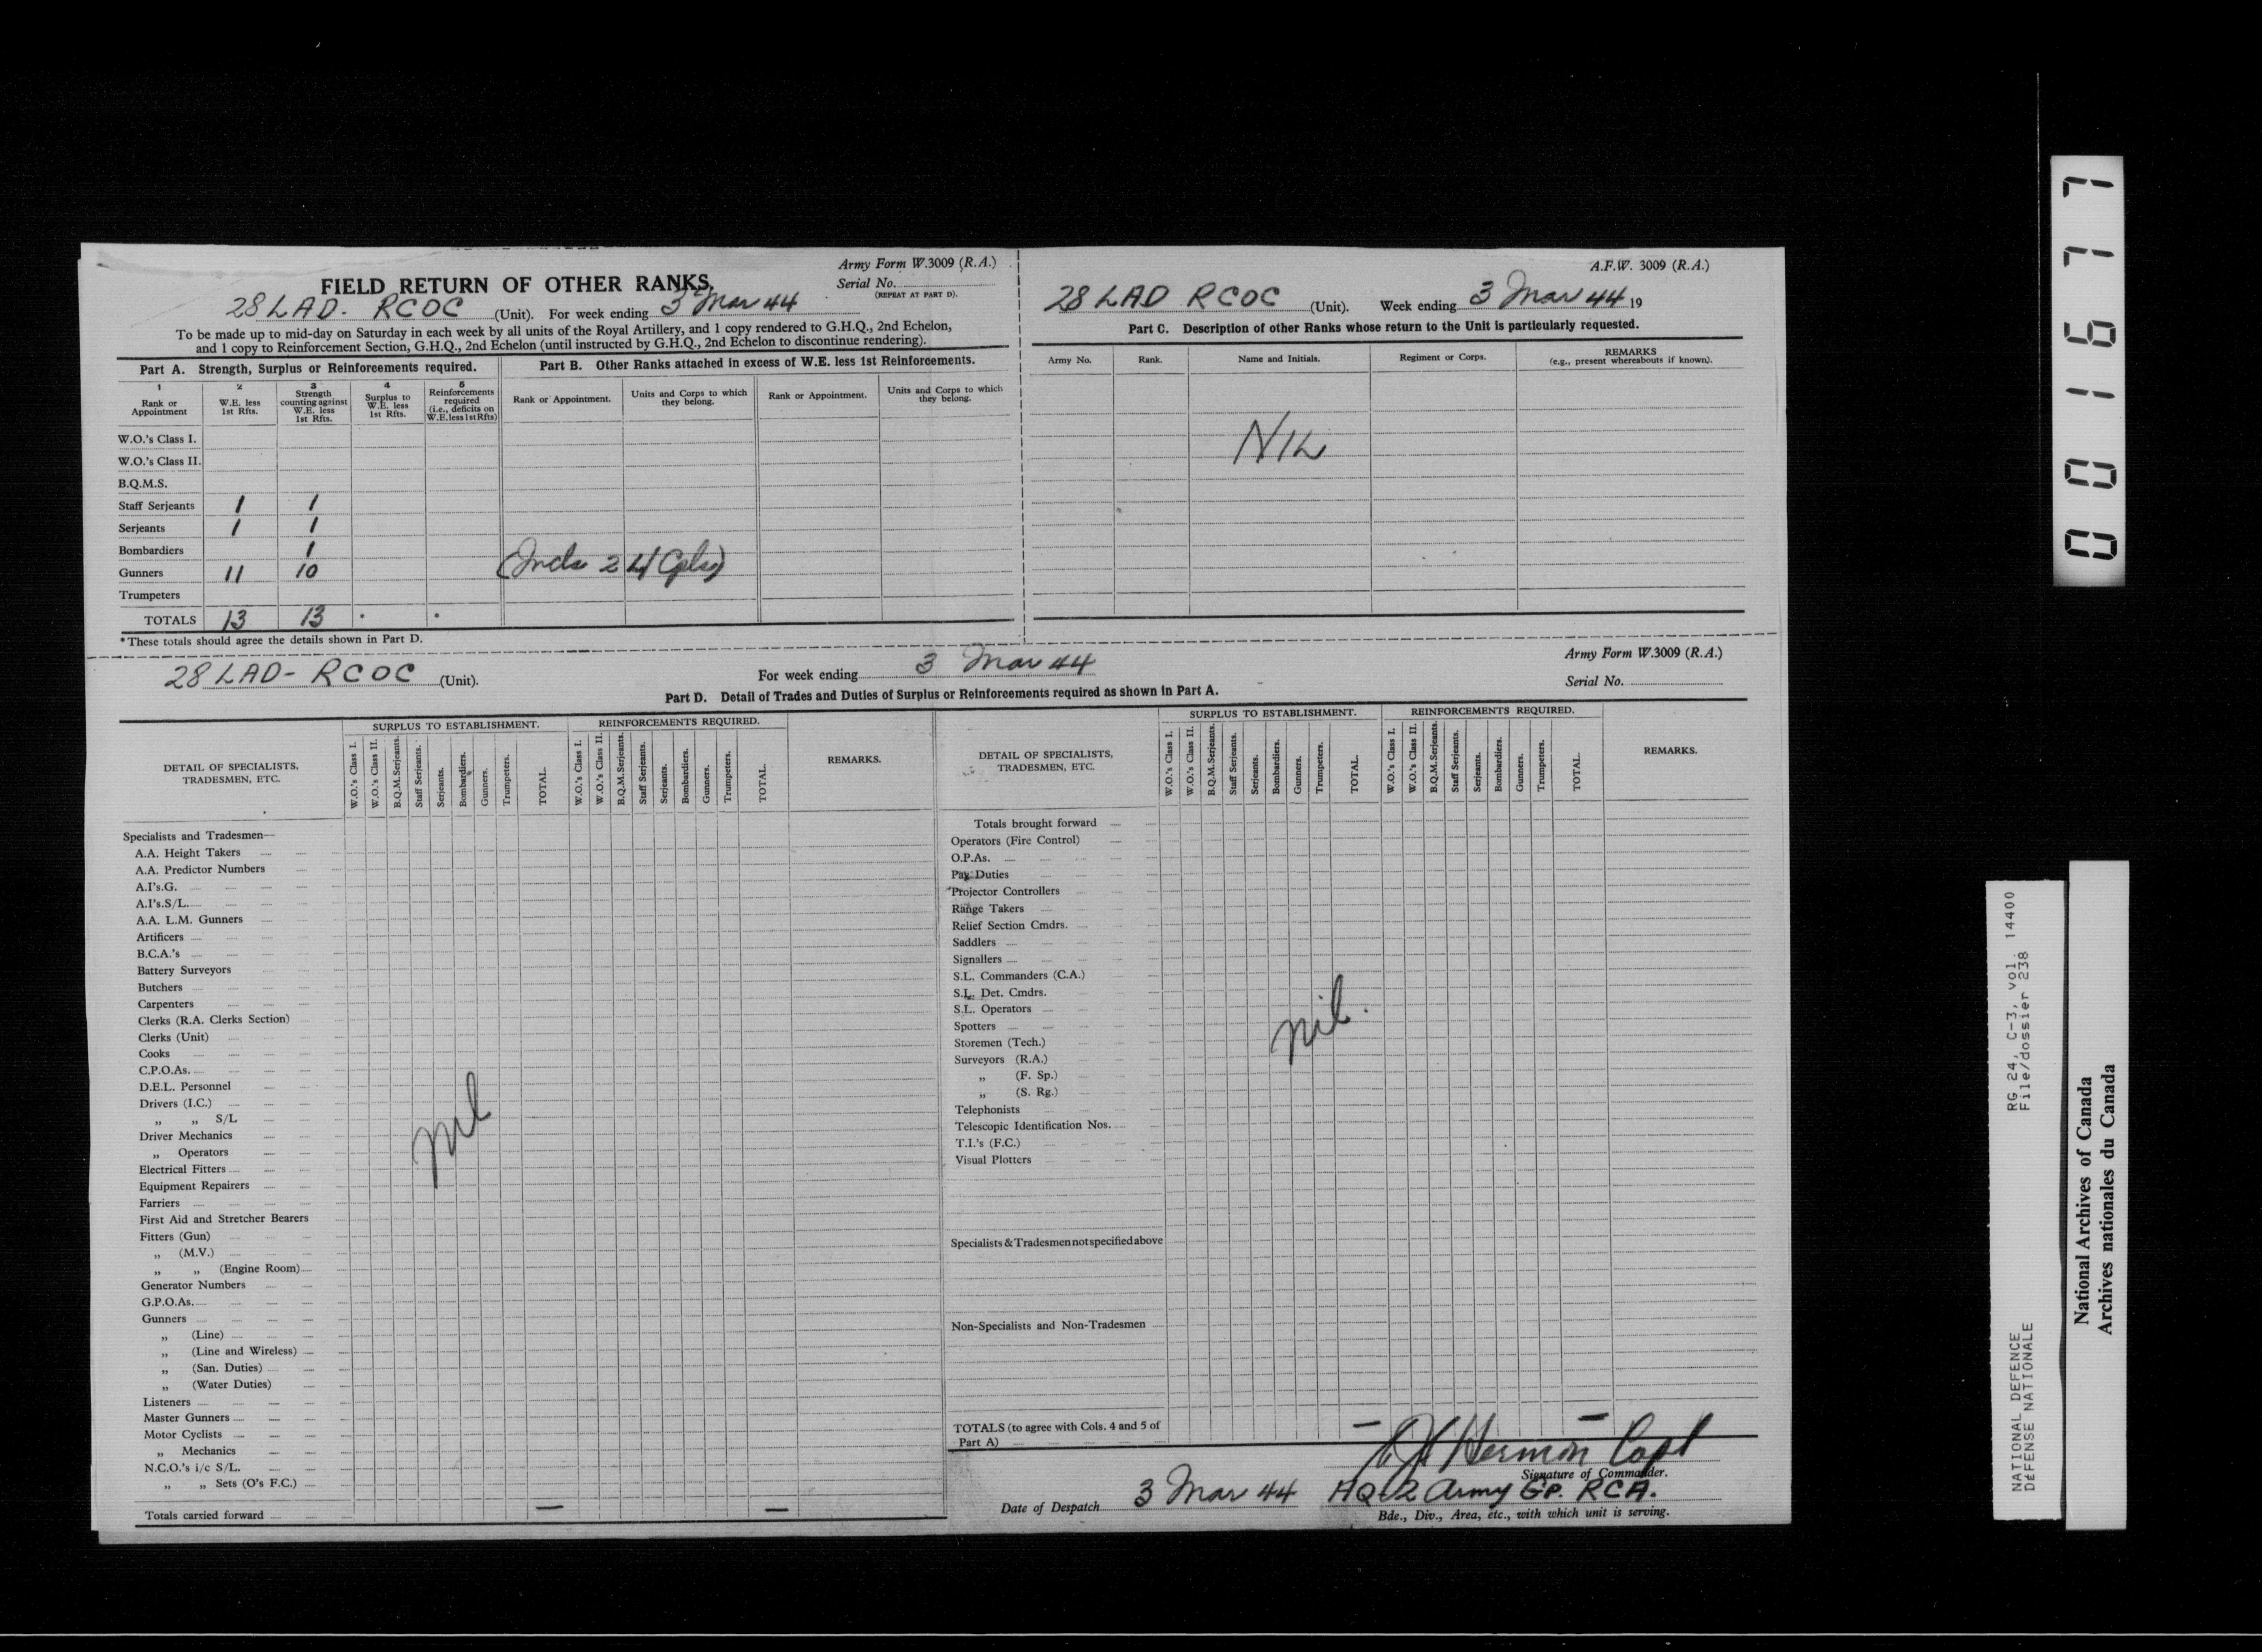 FIELD RETURN OF OTHER RANKS.
Army Form W.3009 (R.A.)
Serial No.
(REPEAT AT PART D).
28 LAD. RCOC (Unit). For week ending 3 Mar 44
To be made up to mid-day on Saturday in each week by all units of the Royal Artillery, and 1 copy rendered to G.H.Q., 2nd Echelon,
and 1 copy to Reinforcement Section, G.H.Q., 2nd Echelon (until instructed by G.H.Q., 2nd Echelon to discontinue rendering).
Part A. Strength, Surplus or Reinforcements required.
Part B. Other Ranks attached in excess of W.E. less 1st Reinforcements.
1 2 3 4 5
Rank or Appointment
W.E. less 1st Rfts.
Strength counting against W.E. less 1st Rfts.
Surplus to W.E. less 1st Rfts.
Reinforcements required (i.e., deficits on W.E. less 1st Rfts)
Rank or Appointment.
Units and Corps to which they belong.
Rank or Appointment.
Units and Corps to which they belong.
W.O.'s Class I.
W.O.'s Class II.
B.Q.M.S.
Staff Serjeants 1 1
Serjeants 1 1
Bombardiers 1
Gunners 11 10 (Incls 2 L/Cpls)
Trumpeters
TOTALS 13 13
*These totals should agree the details shown in Part D.
A.F.W. 3009 (R.A.)
28 LAD RCOC (Unit). Week ending 3 Mar 44 19
Part C. Description of other Ranks whose return to the Unit is particularly requested.
Army No. Rank. Name and Initials. Regiment or Corps. REMARKS
(e.g., present whereabouts if known).
NIL
28 LAD - RCOC (Unit).
For week ending 3 Mar 44
Army Form W.3009 (R.A.)
Serial No.
Part D. Detail of Trades and Duties of Surplus or Reinforcements required as shown in Part A.
DETAIL OF SPECIALISTS, TRADESMEN, ETC.
SURPLUS TO ESTABLISHMENT.
W.O.'s Class I. W.O.'s Class II. B.Q.M.Serjeants. Staff Serjeants. Serjeants. Bombardiers. Gunners. Trumpeters. TOTAL.
REINFORCEMENTS REQUIRED.
W.O.'s Class I. W.O.'s Class II. B.Q.M.Serjeants. Staff Serjeants. Serjeants. Bombardiers. Gunners. Trumpeters. TOTAL.
REMARKS.
Specialists and Tradesmen—
A.A. Height Takers
A.A. Predictor Numbers
A.I's.G.
A.I's.S/L.
A.A. L.M. Gunners
Artificers
B.C.A.'s
Battery Surveyors
Butchers
Carpenters
Clerks (R.A. Clerks Section)
Clerks (Unit)
Cooks
C.P.O.As.
D.E.L. Personnel
Drivers (I.C.)
„ „ S/L
Driver Mechanics
„ Operators
Electrical Fitters
Equipment Repairers
Farriers
First Aid and Stretcher Bearers
Fitters (Gun)
„ (M.V.)
„ „ (Engine Room)
Generator Numbers
G.P.O.As.
Gunners
„ (Line)
„ (Line and Wireless)
„ (San. Duties)
„ (Water Duties)
Listeners
Master Gunners
Motor Cyclists
„ Mechanics
N.C.O.'s i/c S/L.
„ „ Sets (O's F.C.)
Totals carried forward — —
nil
DETAIL OF SPECIALISTS, TRADESMEN, ETC.
SURPLUS TO ESTABLISHMENT.
W.O.'s Class I. W.O.'s Class II. B.Q.M.Serjeants. Staff Serjeants. Serjeants. Bombardiers. Gunners. Trumpeters. TOTAL.
REINFORCEMENTS REQUIRED.
W.O.'s Class I. W.O.'s Class II. B.Q.M.Serjeants. Staff Serjeants. Serjeants. Bombardiers. Gunners. Trumpeters. TOTAL.
REMARKS.
Totals brought forward
Operators (Fire Control)
O.P.As.
Pay Duties
Projector Controllers
Range Takers
Relief Section Cmdrs.
Saddlers
Signallers
S.L. Commanders (C.A.)
S.L. Det. Cmdrs.
S.L. Operators
Spotters
Storemen (Tech.)
Surveyors (R.A.)
„ (F. Sp.)
„ (S. Rg.)
Telephonists
Telescopic Identification Nos.
T.I.'s (F.C.)
Visual Plotters
nil.
Specialists & Tradesmen not specified above
Non-Specialists and Non-Tradesmen
TOTALS (to agree with Cols. 4 and 5 of
Part A) — —
Hermon Capt
Signature of Commander.
Date of Despatch 3 Mar 44 HQ 2 Army Gp. RCA.
Bde., Div., Area, etc., with which unit is serving.
001677
NATIONAL DEFENCE RG 24, C-3, vol. 14400
DéFENSE NATIONALE File/dossier 238
National Archives of Canada
Archives nationales du Canada